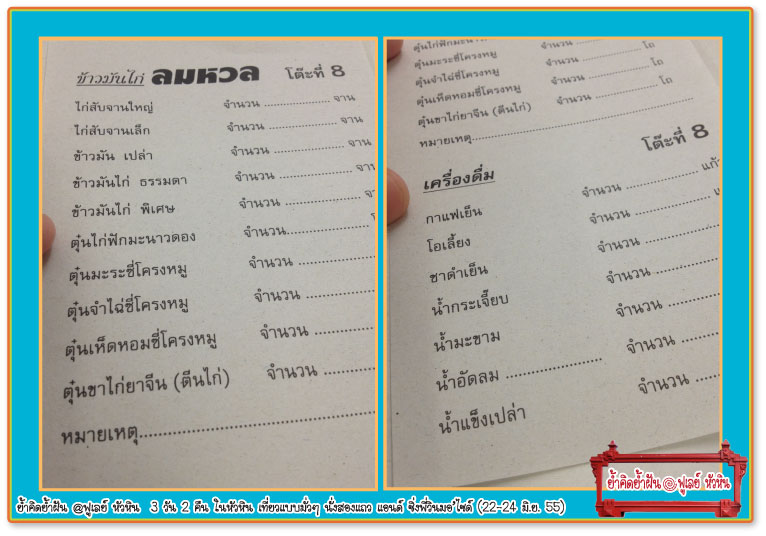 ข้าวมันไก่ ลมหวล โต๊ะที่ 8
ไก่สับจานใหญ่ จำนวน ...................... จาน
ไก่สับจานเล็ก จำนวน ...................... จาน
ข้าวมัน เปล่า จำนวน ...................... จาน
ข้าวมันไก่ ธรรมดา จำนวน ......................
ข้าวมันไก่ พิเศษ จำนวน ......................
ตุ๋นไก่ฟักมะนาวดอง จำนวน......................
ตุ๋นมะระซี่โครงหมู จำนวน ......................
ตุ๋นจำไฉ่ซี่โครงหมู จำนวน ......................
ตุ๋นเห็ดหอมซี่โครงหมู จำนวน ..................
ตุ๋นขาไก่ยาจีน (ตีนไก่) จำนวน ................
หมายเหตุ............................................................
ตุ๋นไก่ฟักมะนาวดอง จำนวน
ตุ๋นมะระซี่โครงหมู จำนวน ...................... โถ
ตุ๋นจำไฉ่ซี่โครงหมู จำนวน ...................... โถ
ตุ๋นเห็ดหอมซี่โครงหมู จำนวน ...................... โถ
ตุ๋นขาไก่ยาจีน (ตีนไก่) จำนวน ......................
หมายเหตุ............................................................
โต๊ะที่ 8
เครื่องดื่ม
กาแฟเย็น จำนวน ......................
โอเลี้ยง จำนวน ......................
ชาดำเย็น จำนวน ......................
น้ำกระเจี๊ยบ จำนวน ......................
น้ำมะขาม จำนวน ......................
น้ำอัดลม ...................... จำนวน ................
น้ำแข็งเปล่า จำนวน ................
ย้ำคิดย้ำฝัน @ฟูเลย์ หัวหิน
ย้ำคิดย้ำฝัน @ฟูเลย์ หัวหิน 3 วัน 2 คืน ในหัวหิน เที่ยวแบบมั่วๆ นั่งสองแถว แอนด์ ซิ่งพี่วินมอ'ไซด์ (22-24 มิ.ย. 55)